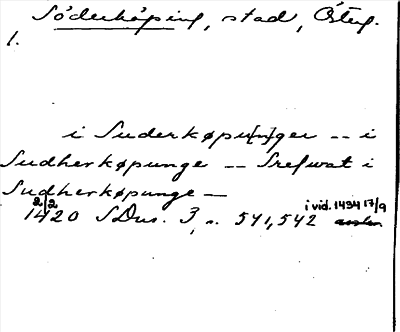 Söderköping, stad, Östg.
1.
i Suderkøpu[n]ger -- i
Sudherkøpunge -- Srefwat i
Sudherkøpunge —
2/2 i vid. 1434 17/9
1420 SDns. 3, s. 541, 542